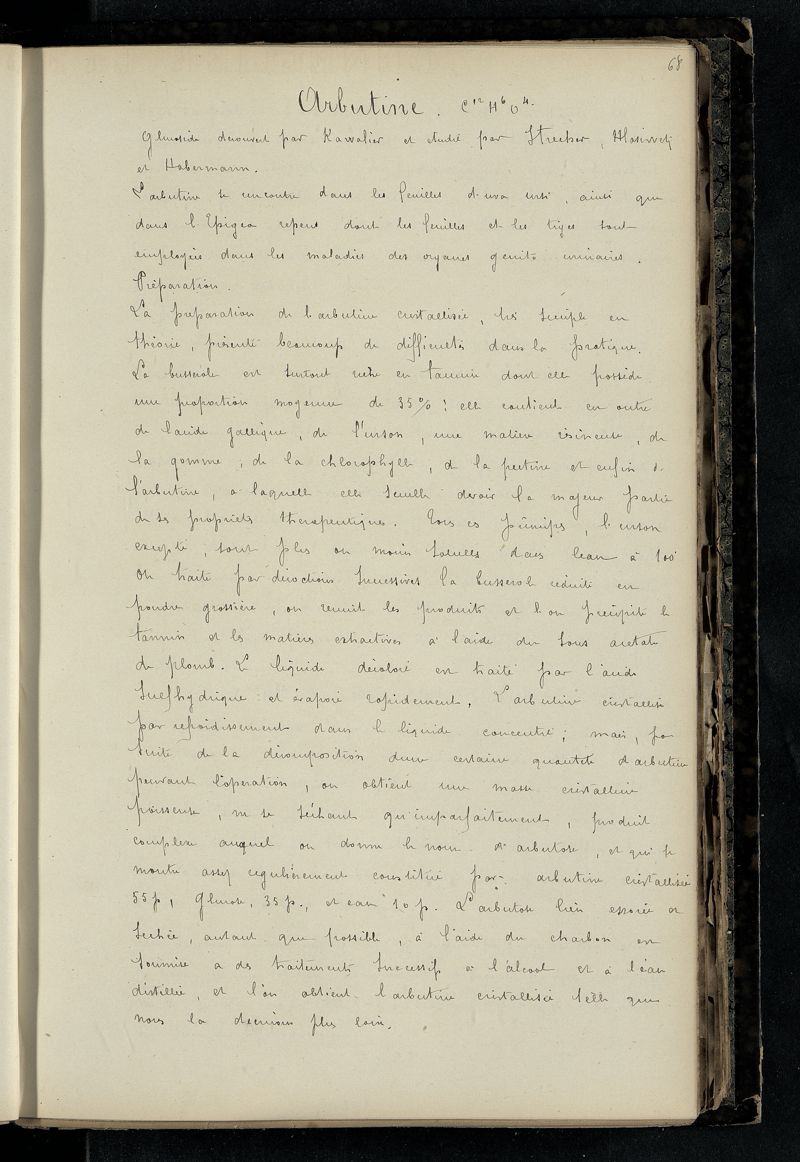 68
Arbutine. C12 H6 O4.
Glucoside découvert par Kawalier et étudié par Strecker, Hlasiwetz
et Habermann.
L'arbutine se rencontre dans les feuilles d'uva ursi, ainsi que
dans l'Epigea repens dont les feuilles et les tiges sont
employées dans les maladies des organes genito urinaires.
Préparation.
La preparation de l'arbutine cristallisée, très simple en
théorie, présente beaucoup de difficultés dans la pratique.
La busserole est surtout riche en tannin dont elle possède
une proportion moyenne de 35 % ; elle contient en outre
de l'acide gallique, de l'urson, une matière résineuse, de
la gomme, de la chlorophylle, de la pectine et enfin de
l'arbutine, à laquelle elle semble devoir la majeur partie
de ses propriétés therapeutiques. Tous ces principes, l'urson
excepté, sont plus ou moins solubles dans l'eau à 100°
On traite par décoctions successives la busserole réduite en
poudre grossière, on réunit les produits et l'on précipite le
tannin et les matières extractives à l'aide du sous acetate
de plomb. Le liquide décoloré est traité par l'acide
sulfhydrique et évaporé rapidement. L'arbutine cristallise
par refroidissement dans le liquide concentré ; mais, par
suite de la décomposition d'une certaine quantité d'arbutine
pendant l'opération, on obtient une masse cristalline
poisseuse, ne se séchant qu'imparfaitement, produit
complexe auquel on donne le nom d'arbutose, et qui se
montre assez regulièrement constitué par : arbutine cristallisée
55 p, glucose, 35 p., et eau 10 p. L'arbutose bien essorée et
séchée, autant que possible, à l'aide du charbon est
soumise à des traitements successifs à l'alcool et à l'eau
distillée, et l'on obtient l'arbutine cristallisée telle que
nous la décrirons plus loin.